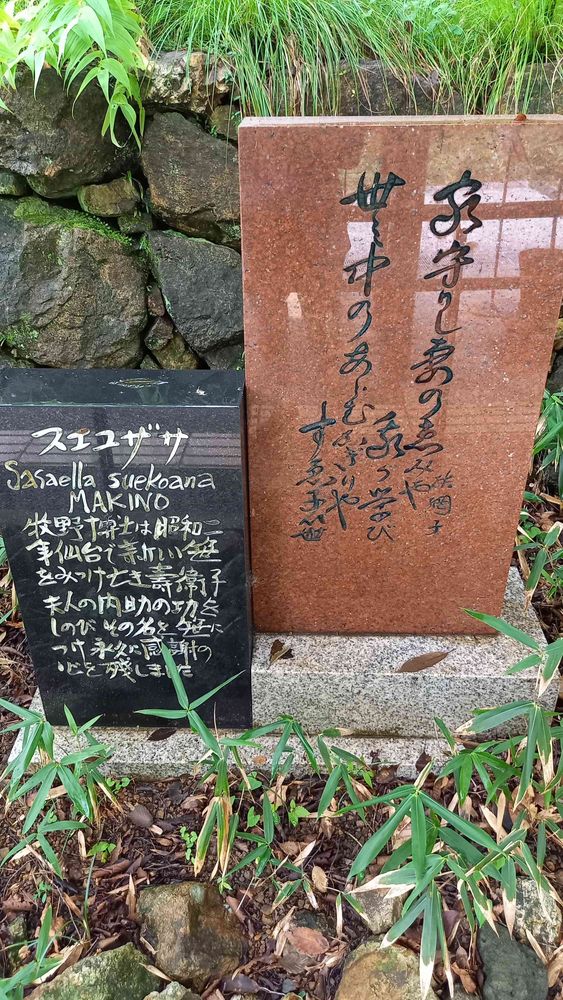 家守りし妻の恵みや
我が学び
世の中のあらむかぎりや
すゑ子笹
スエコザサ
Sasaella suekoana
MAKINO
牧野博士は昭和二
年仙台で新しい笹
をみつけたとき壽衛子
夫人の内助の功を
しのびその名を笹に
つけ永久に感謝の
心を残しました